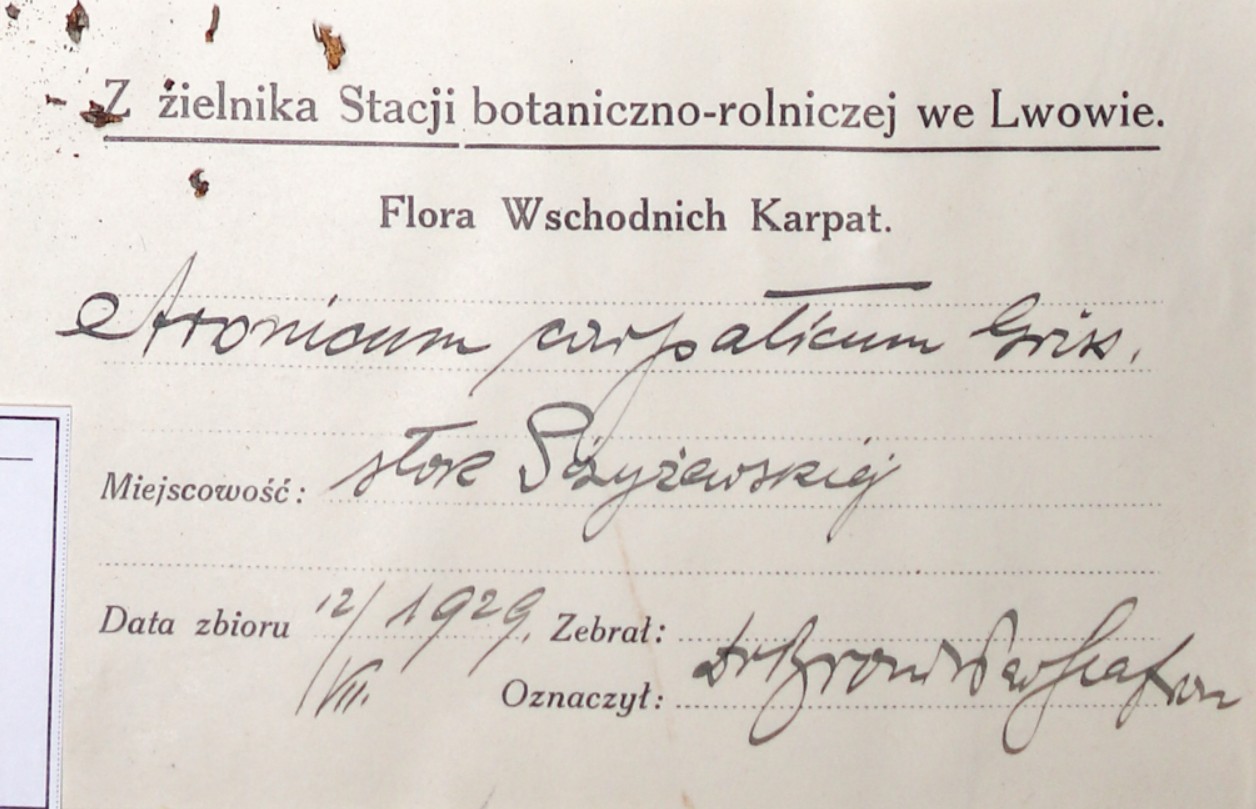 Z zielnika Stacji botaniczno-rolniczej we Lwowie.
Flora Wschodnich Karpat.
Aronicum carpaticum Gris.
Miejscowość: stok
Data zbioru 12/VII. 1929. Zebrał:
Oznaczył: Dr Bron